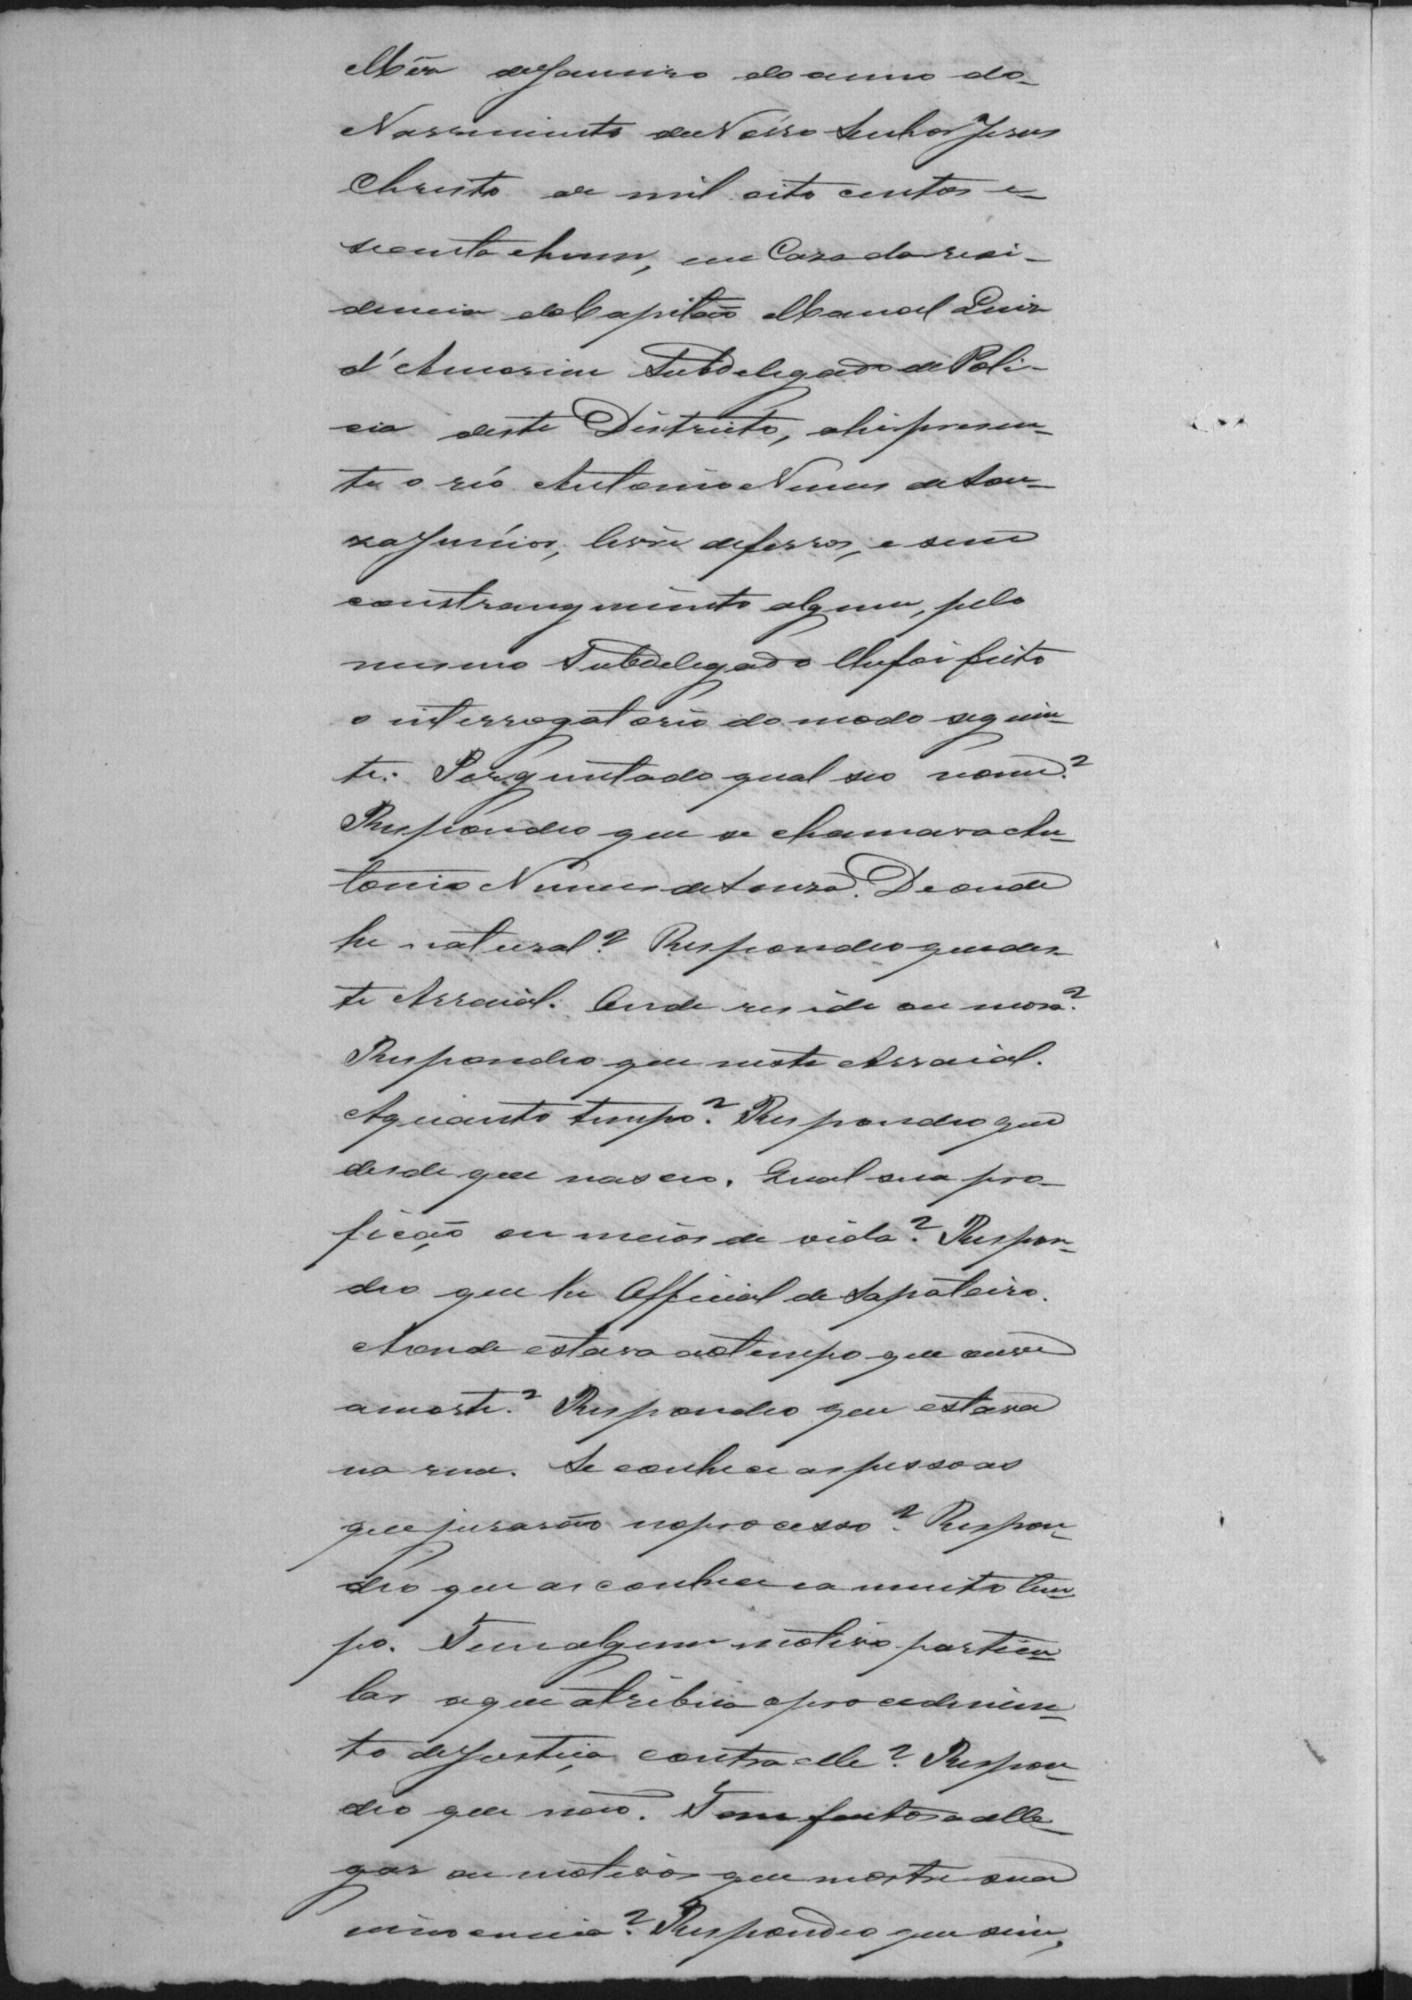 Mês de Janeiro do anno do
Nascimento de Nosso Senhor Jesus
Christo de mil oito centos e
secenta e hum, em Casa da resi-
dencia do Capitão Manoel Luiz
d'Amorim Subdelegado de Poli-
cia deste Districto, ahi presen-
te o reó Antonio Nunes de Sou-
za Junior, livre de ferros, e sem
constrangimento algum, pelo
mesmo Subdelegado lhe foi feito
o interrogatorio do modo seguin-
te: Perguntado qual seo nome?
Respondeo que se chamava An-
tonio Nunes de Souza. De onde
he natural? Respondeo que des-
te Arraial. Onde reside ou mora?
Respondeo que neste Arraial.
A quanto tempo? Respondeo que
desde que nasceo. Qual sua pro-
fição ou meios de vida? Respon-
deo que he Official de Sapateiro.
Aonde estava ao tempo que ouve
a morte? Respondeo que estava
na rua. Se conhece as pessoas
que jurarão no processo? Respon-
deo que as conhece a muito tem-
po. Tem algum motivo particu-
lar a que atribua o procedimen-
to de Justiça contra elle? Respon-
deo que não. Tem factos a alle-
gar ou motivos que mostre sua
inocencia? Respondeo que sim,